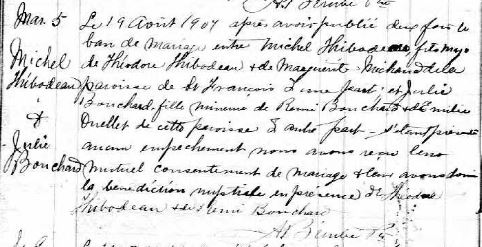 Mar. 5
Michel
Thibodeau
&
Julie
Bouchard
Le 19 Août 1907 après avoir publié deux fois le
ban de mariage entre Michel Thibodeau, fils maj.
de Théodore Thibodeau & de Marguerite Michaud de la
paroisse de St François d'une part, et Julie
Bouchard, fille mineure de Rémi Bouchard & d'Emilie
Ouellet de cette paroisse d'autre part – s'étant présenté
aucun empechement nous avons reçu leur
mutuel consentement de mariage & leur avons donné
la bénédiction nuptiale en présence de Théodore
Thibodeau & de Rémi Bouchard